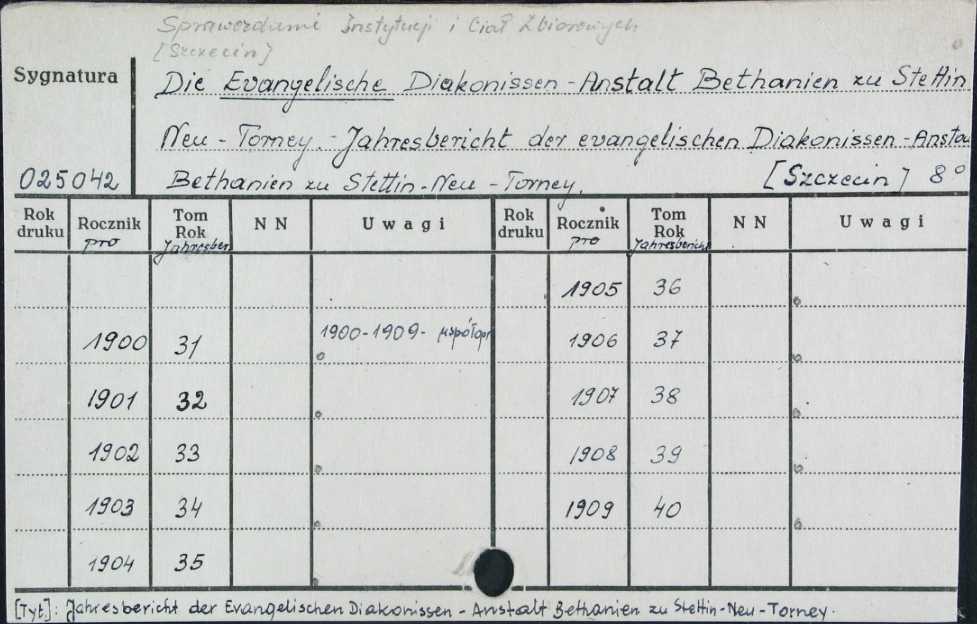 Sprawozdania Instytucji i Ciał Zbiorowych
[Szczecin]
Sygnatura
Die Evangelische Diakonissen-Anstalt Bethanien zu Stettin
Neu-Torney.-Jahresbericht der evangelischen Diakonissen-Ansta
025042 Bethanien zu Stettin-Neu-Torney. [Szczecin] 8°
Rok druku Rocznik pro Tom Rok Jahresber NN Uwagi Rok druku Rocznik pro Tom Rok Jahresbericht NN Uwagi
1905 36
1900 31 1900-1909- współopr 1906 37
1901 32 1907 38
1902 33 1908 39
1903 34 1909 40
1904 35
[Tyt]: Jahresbericht der Evangelischen Diakonissen-Anstalt Bethanien zu Stettin-Neu-Torney.